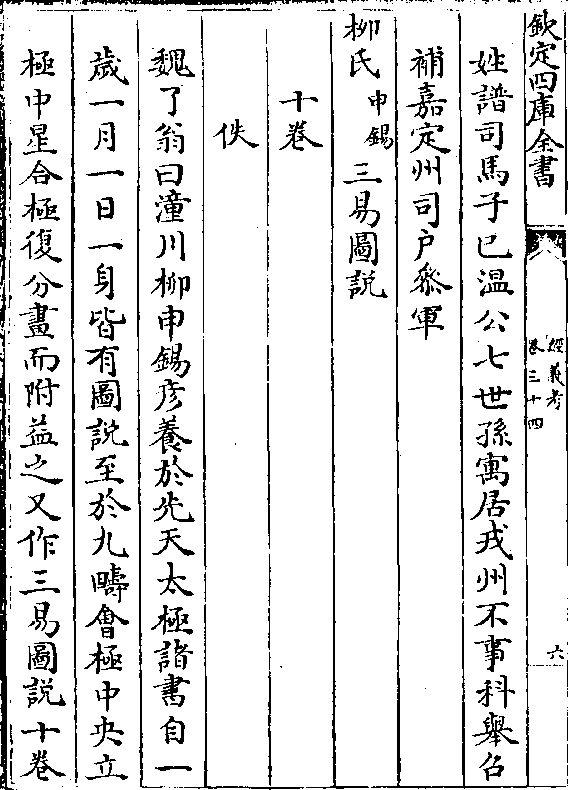 欽定四庫全書
經義考
卷三十四
六
姓譜司馬子巳温公七世孫寓居戎州不事科舉召
補嘉定州司户叅軍
柳氏申錫三易圖説
十卷
佚
魏了翁曰潼川柳申錫彦養於先天太極諸書自一
歲一月一日一身皆有圖說至於九疇會極中央立
極中星合極復分畫而附益之又作三易圖說十卷